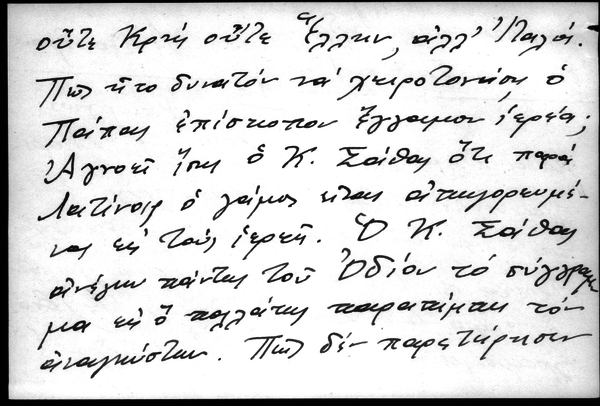 οὔτε Κρὴς οὔτε Ἕλλην, ἀλλ' Ἰταλός.
Πῶς ἦτο δυνατόν νά χειροτονήσῃ ὁ
Πάπας ἐπίσκοπον ἔγγαμον ἱερέα;
Ἀγνοεῖ ἴσως ὁ Κ. Σάθας ὅτι παρά
Λατίνοις ὁ γάμος εἶναι ἀπηγορευμέ-
νος εἰς τούς ἱερεῖς. Ὁ Κ. Σάθας
ἀνέγνω πάντως τοῦ Ὁδίου τό σύγγραμ
μα εἰς ὅ πολλάκις παραπέμπει τόν
ἀναγνώστην. Πῶς δέν παρετήρησεν